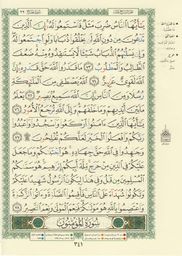 يَٰٓأَيُّهَا ٱلنَّاسُ ضُرِبَ مَثَلٌ فَٱسْتَمِعُوا۟ لَهُۥٓ إِنَّ ٱلَّذِينَ
تَدْعُونَ مِن دُونِ ٱللَّهِ لَن يَخْلُقُوا۟ ذُبَابًا وَلَوِ ٱجْتَمَعُوا۟ لَهُۥ
وَإِن يَسْلُبْهُمُ ٱلذُّبَابُ شَيْـًٔا لَّا يَسْتَنقِذُوهُ مِنْهُ ضَعُفَ
ٱلطَّالِبُ وَٱلْمَطْلُوبُ مَا قَدَرُوا۟ ٱللَّهَ حَقَّ قَدْرِهِۦٓ إِنَّ
ٱللَّهَ لَقَوِىٌّ عَزِيزٌ ٱللَّهُ يَصْطَفِى مِنَ ٱلْمَلَٰٓئِكَةِ
رُسُلًا وَمِنَ ٱلنَّاسِ إِنَّ ٱللَّهَ سَمِيعٌۢ بَصِيرٌ يَعْلَمُ
مَا بَيْنَ أَيْدِيهِمْ وَمَا خَلْفَهُمْ وَإِلَى ٱللَّهِ تُرْجَعُ ٱلْأُمُورُ
يَٰٓأَيُّهَا ٱلَّذِينَ ءَامَنُوا۟ ٱرْكَعُوا۟ وَٱسْجُدُوا۟ وَٱعْبُدُوا۟
رَبَّكُمْ وَٱفْعَلُوا۟ ٱلْخَيْرَ لَعَلَّكُمْ تُفْلِحُونَ
وَجَٰهِدُوا۟ فِى ٱللَّهِ حَقَّ جِهَادِهِۦ هُوَ ٱجْتَبَىٰكُمْ وَمَا جَعَلَ
عَلَيْكُمْ فِى ٱلدِّينِ مِنْ حَرَجٍ مِّلَّةَ أَبِيكُمْ إِبْرَٰهِيمَ هُوَ سَمَّىٰكُمُ
ٱلْمُسْلِمِينَ مِن قَبْلُ وَفِى هَٰذَا لِيَكُونَ ٱلرَّسُولُ شَهِيدًا عَلَيْكُمْ
وَتَكُونُوا۟ شُهَدَآءَ عَلَى ٱلنَّاسِ فَأَقِيمُوا۟ ٱلصَّلَوٰةَ وَءَاتُوا۟ ٱلزَّكَوٰةَ
وَٱعْتَصِمُوا۟ بِٱللَّهِ هُوَ مَوْلَىٰكُمْ فَنِعْمَ ٱلْمَوْلَىٰ وَنِعْمَ ٱلنَّصِيرُ
سُورَةُ الْمُؤْمِنُونَ
٣٤١